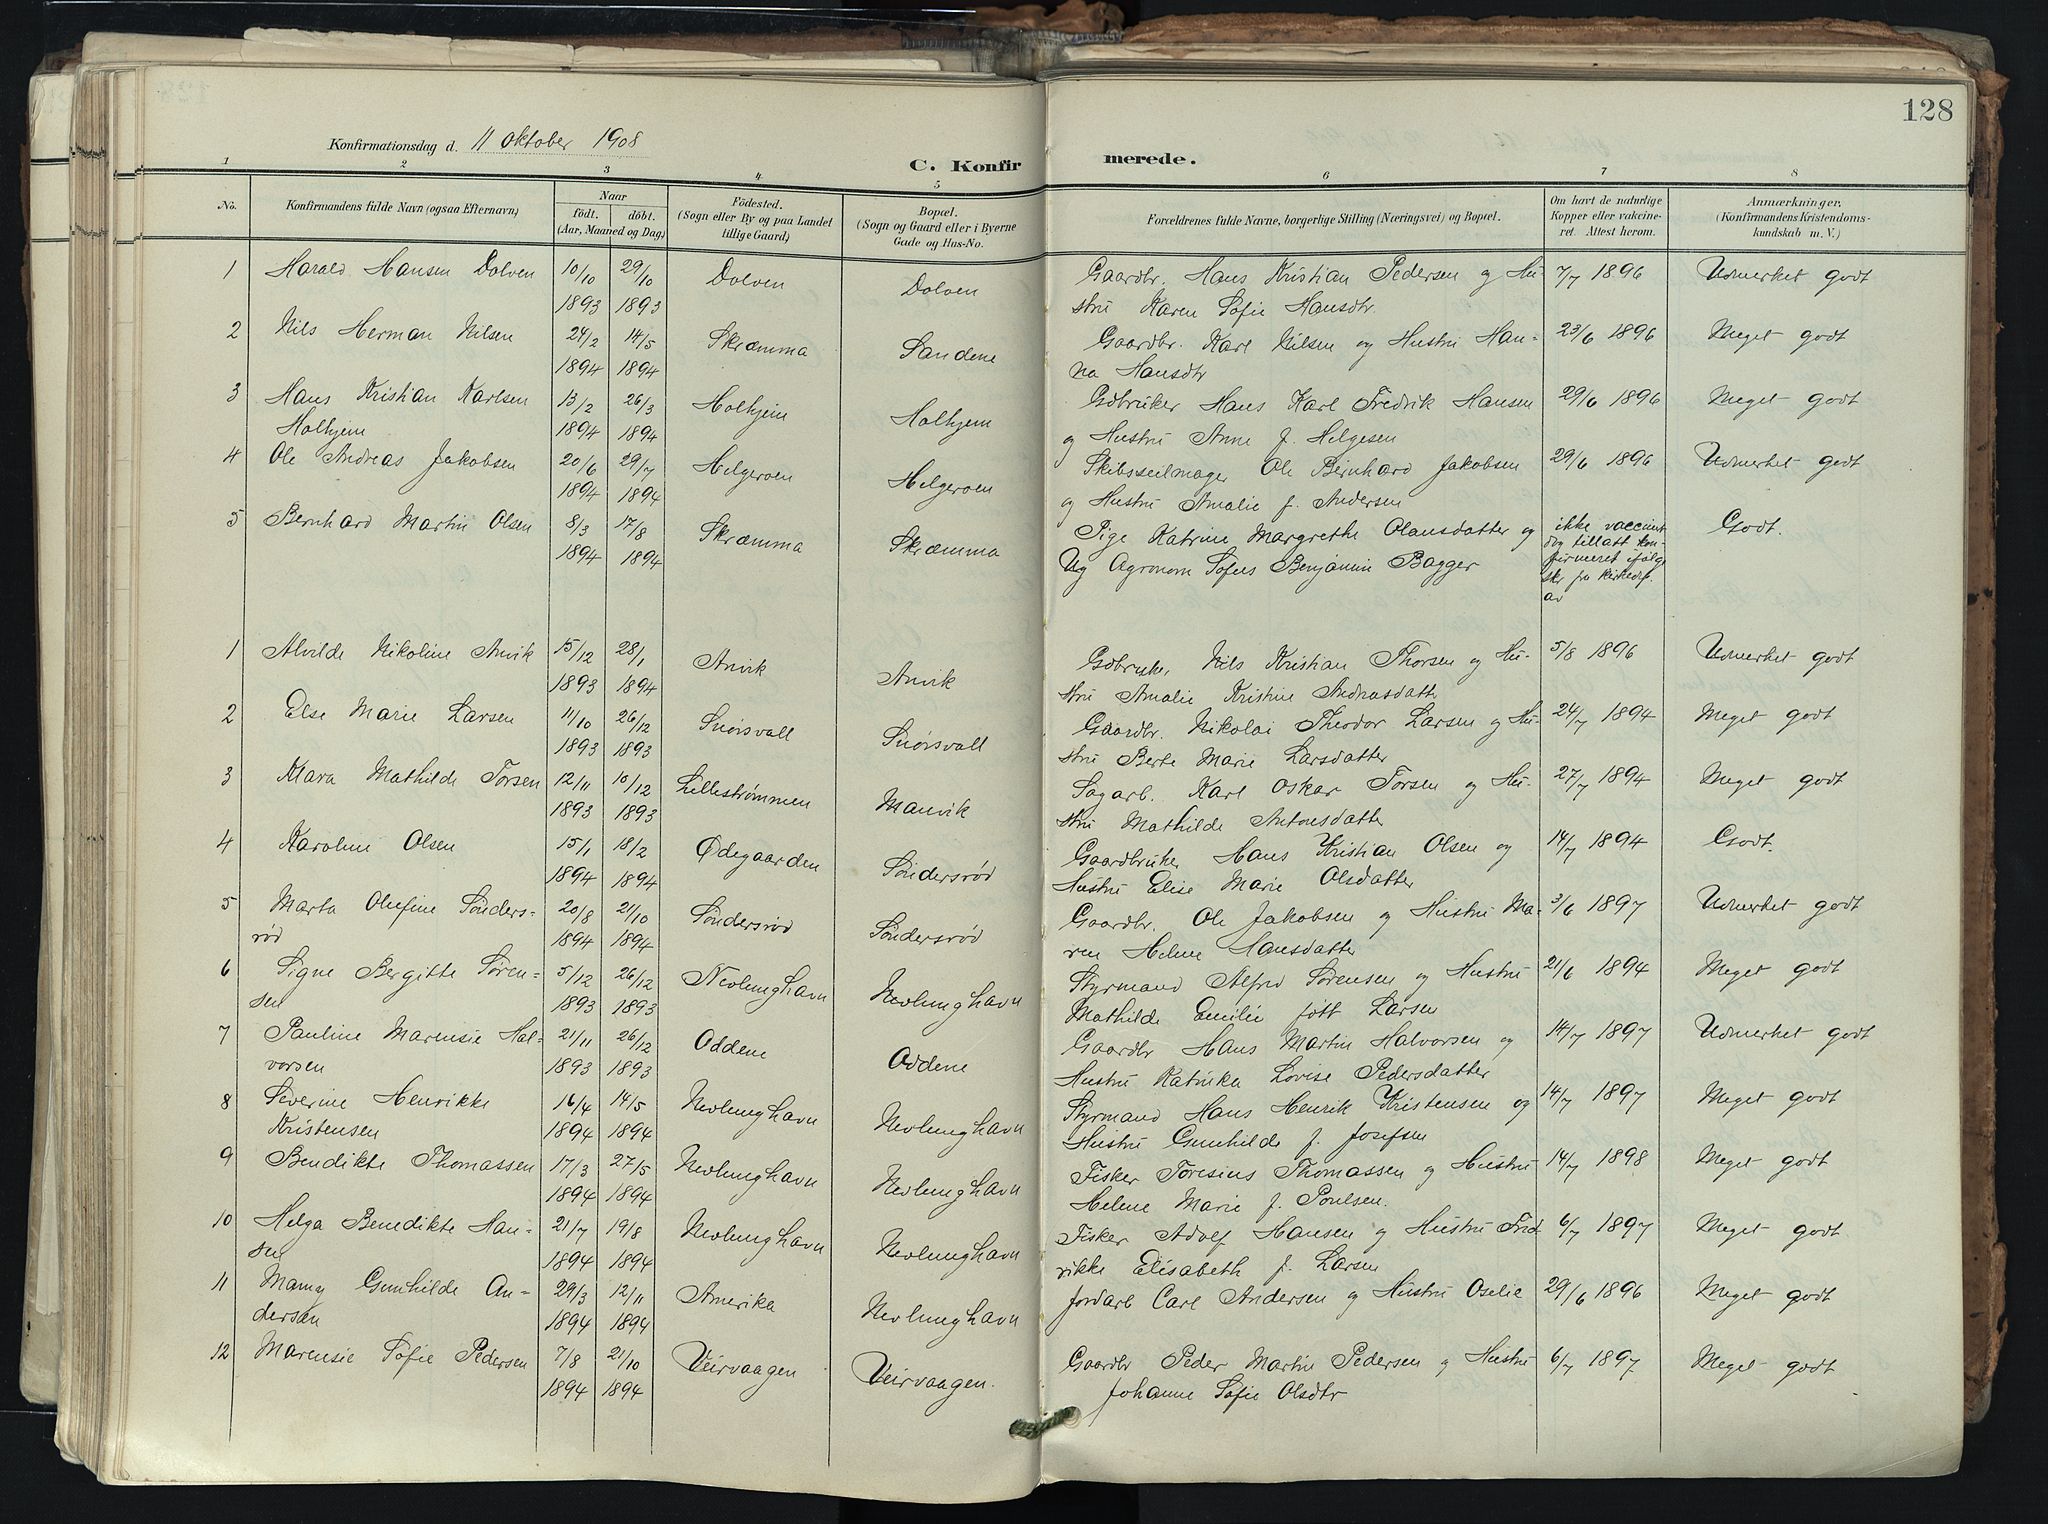 128
Konfirmationsdag d. 11 oktober 1908
C. Konfirmerede.
1 2 3 4 5 6 7 8
No.
Konfirmandens fulde Navn (ogsaa Efternavn)
Naar
födt. döbt.
(Aar, Maaned og Dag)
Födested.
(Sogn eller By og paa Landet
tillige Gaard)
Bopæl.
(Sogn og Gaard eller i Byerne
Gade og Hus-No.
Forældrenes fulde Navne, borgerlige Stilling (Næringsvei) og Bopæl.
Om havt de naturlige
Kopper eller vakcine-
ret. Attest herom.
Anmærkninger.
(Konfirmandens Kristendoms-
kundskab m. V.)
1 Harald Hansen Dolven 10/10 29/10 Dolven Dolven Gaardbr. Hans Kristian Pedersen og Hu- 7/7 1896 Udmerket godt
1893 1893 stru Karen Sofie Hansdtr.
2 Nils Herman Nilsen 24/2 14/5 Skræmma Sandene Gaardbr. Karl Nilsen og Hustru Han- 23/6 1896 Meget godt
1894 1894 na Hansdtr
3 Hans Kristian Karlsen 13/2 26/3 Holhjem Holhjem Gdbruker Hans Karl Fredrik Hansen 29/6 1896 Meget godt
Holhjem 1894 1894 og Hustru Anne f. Helgesen
4 Ole Andreas Jakobsen 20/6 29/7 Helgeroen Helgeroen Skibsseilmager Ole Bernhard Jakobsen 29/6 1896 Udmerket godt
1894 1894 og Hustru Amalie f. Andersen
5 Bernhard Martin Olsen 8/3 17/8 Skræmma Skræmma Pige Katrine Margrethe Olausdatter og ikke vaccinert Godt.
1894 1894 Ug Agronom Sofus Benjamin Bagger dog tillatt kon-
firmeret ifølge
skr fra kirkedep.
av
1 Alvilde Nikoline Anvik 15/12 28/1 Anvik Anvik Gdbruker Nils Kristian Thorsen og Hu- 5/8 1896 Udmerket godt
1893 1894 stru Amalie Kristine Andreasdatter
2 Else Marie Larsen 11/10 26/12 Snørsvall Snørsvall Gaardbr. Nikolai Theodor Larsen og Hu- 24/7 1894 Meget godt
1893 1893 stru Berte Marie Larsdatter
3 Klara Mathilde Torsen 12/11 10/12 Lillestrømmen Manvik Sagarb. Karl Oskar Torsen og Hu- 27/7 1894 Meget godt
1893 1893 stru Mathilde Antonsdatter
4 Karoline Olsen 15/1 18/2 Ødegaarden Søndersrød Gaardbruker Hans Kristian Olsen og 14/7 1894 Godt.
1894 1894 Hustru Elise Marie Olsdatter
5 Marta Olefine Sønders- 20/8 21/10 Søndersrød Søndersrød Gaardbr. Ole Jakobsen og Hustru Ma- 3/6 1897 Udmerket godt
rød 1894 1894 ren Helene Hansdatter
6 Signe Bergitte Søren- 5/12 26/12 Nevlunghavn Nevlunghavn Styrmand Alfred Sørensen og Hustru 21/6 1894 Meget godt
sen 1893 1893 Mathilde Emilie født Larsen
7 Pauline Marensie Hal- 21/11 26/12 Oddene Oddene Gaardbr Hans Martin Halvorsen og 14/7 1897 Udmerket godt
vorsen 1893 1893 Hustru Katrika Lovise Pedersdatter
8 Severine Henrikke 16/4 14/5 Nevlunghavn Nevlunghavn Styrmand Hans Henrik Kristensen og 14/7 1897 Meget godt
Kristensen 1894 1894 Hustru Gunhilde f. Josefsen
9 Bendikte Thomassen 17/3 27/5 Nevlunghavn Nevlunghavn Fisker Toresius Thomassen og Hustru 14/7 1898 Meget godt
1894 1894 Helene Marie f. Poulsen.
10 Helga Benedikte Han- 21/7 19/8 Nevlunghavn Nevlunghavn Fisker Adolf Hansen og Hustru Fred 6/7 1897 Meget godt
sen 1894 1894 rikke Elisabeth f. Larsen
11 Mamy Gunhilde An- 29/3 12/11 Amerika Nevlunghavn Jordarb Carl Andersen og Hustru Oselie 29/6 1896 Meget godt
dersen 1894 1894
12 Marensie Sofie Pedersen 7/8 21/10 Veirvaagen Veirvaagen. Gaardbr Peder Martin Pedersen og Hustru 6/7 1897 Meget godt
1894 1894 Johanne Sofie Olsdtr